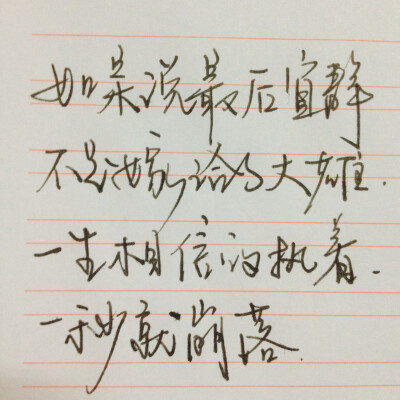 如果说最后宜静
不是嫁给了大雄.
一生相信的执着.
一秒就崩落.